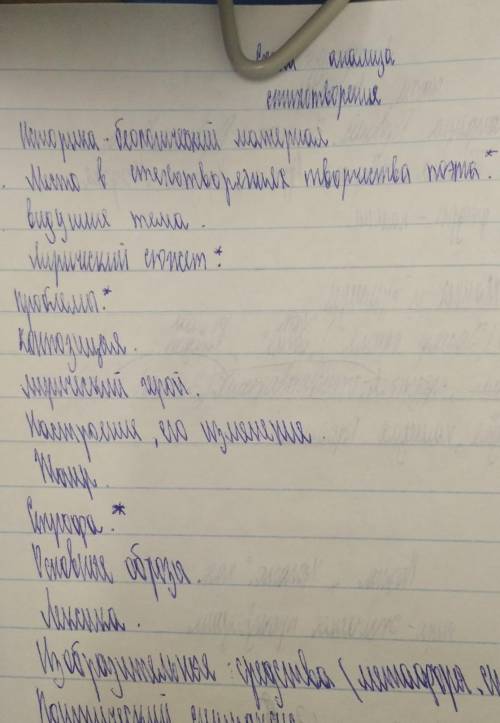 анализа
стихотворения
Историко-биологический материал
Место в стихотворениях творчества поэта.*
видущие тема.
Лирический сюжет.*
проблемы.*
композиция.
лирический герой.
Настроение, его изменение.
Жанр.
Строфа.*
Основные образы.
Лексика.
Изобразительные средства (метафора,
Поэтический синтаксис